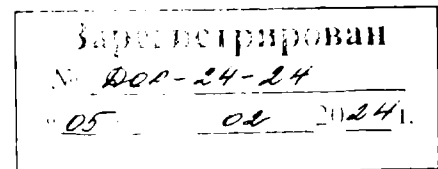 Зарегистрирован
№ ДОГ-24-24
"05" 02 2024 г.